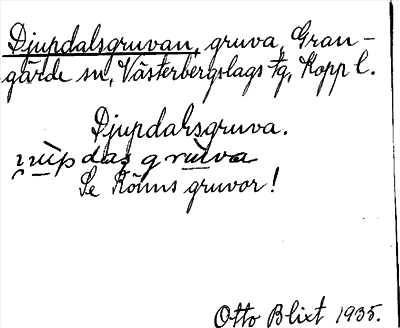 Djupdalsgruvan, gruva, Gran-
gärde sn, Västerbergslags tg, Kopp l.
Djupdalsgruva.
gruva
Se Röms gruvor!
Otto Blixt 1935.